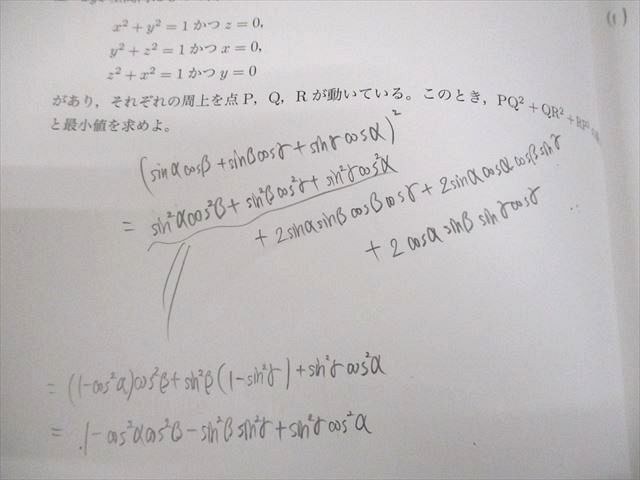 (1)
x² + y² = 1 かつ z = 0,
y² + z² = 1 かつ x = 0,
z² + x² = 1 かつ y = 0
があり、それぞれの周上を点 P, Q, R が動いている。このとき、PQ² + QR² + RP²
と最小値を求めよ。
(sinα cosβ + sinβ cosγ + sinγ cosα)²
= sin²α cos²β + sin²β cos²γ + sin²γ cos²α
+ 2 sinα sinβ cosβ cosγ + 2 sinα cosα cosβ sinγ
+ 2 cosα sinβ sinγ cosγ
= (1-cos²α)cos²β + sin²β(1-sin²γ) + sin²γ cos²α
= 1 - cos²α cos²β - sin²β sin²γ + sin²γ cos²α